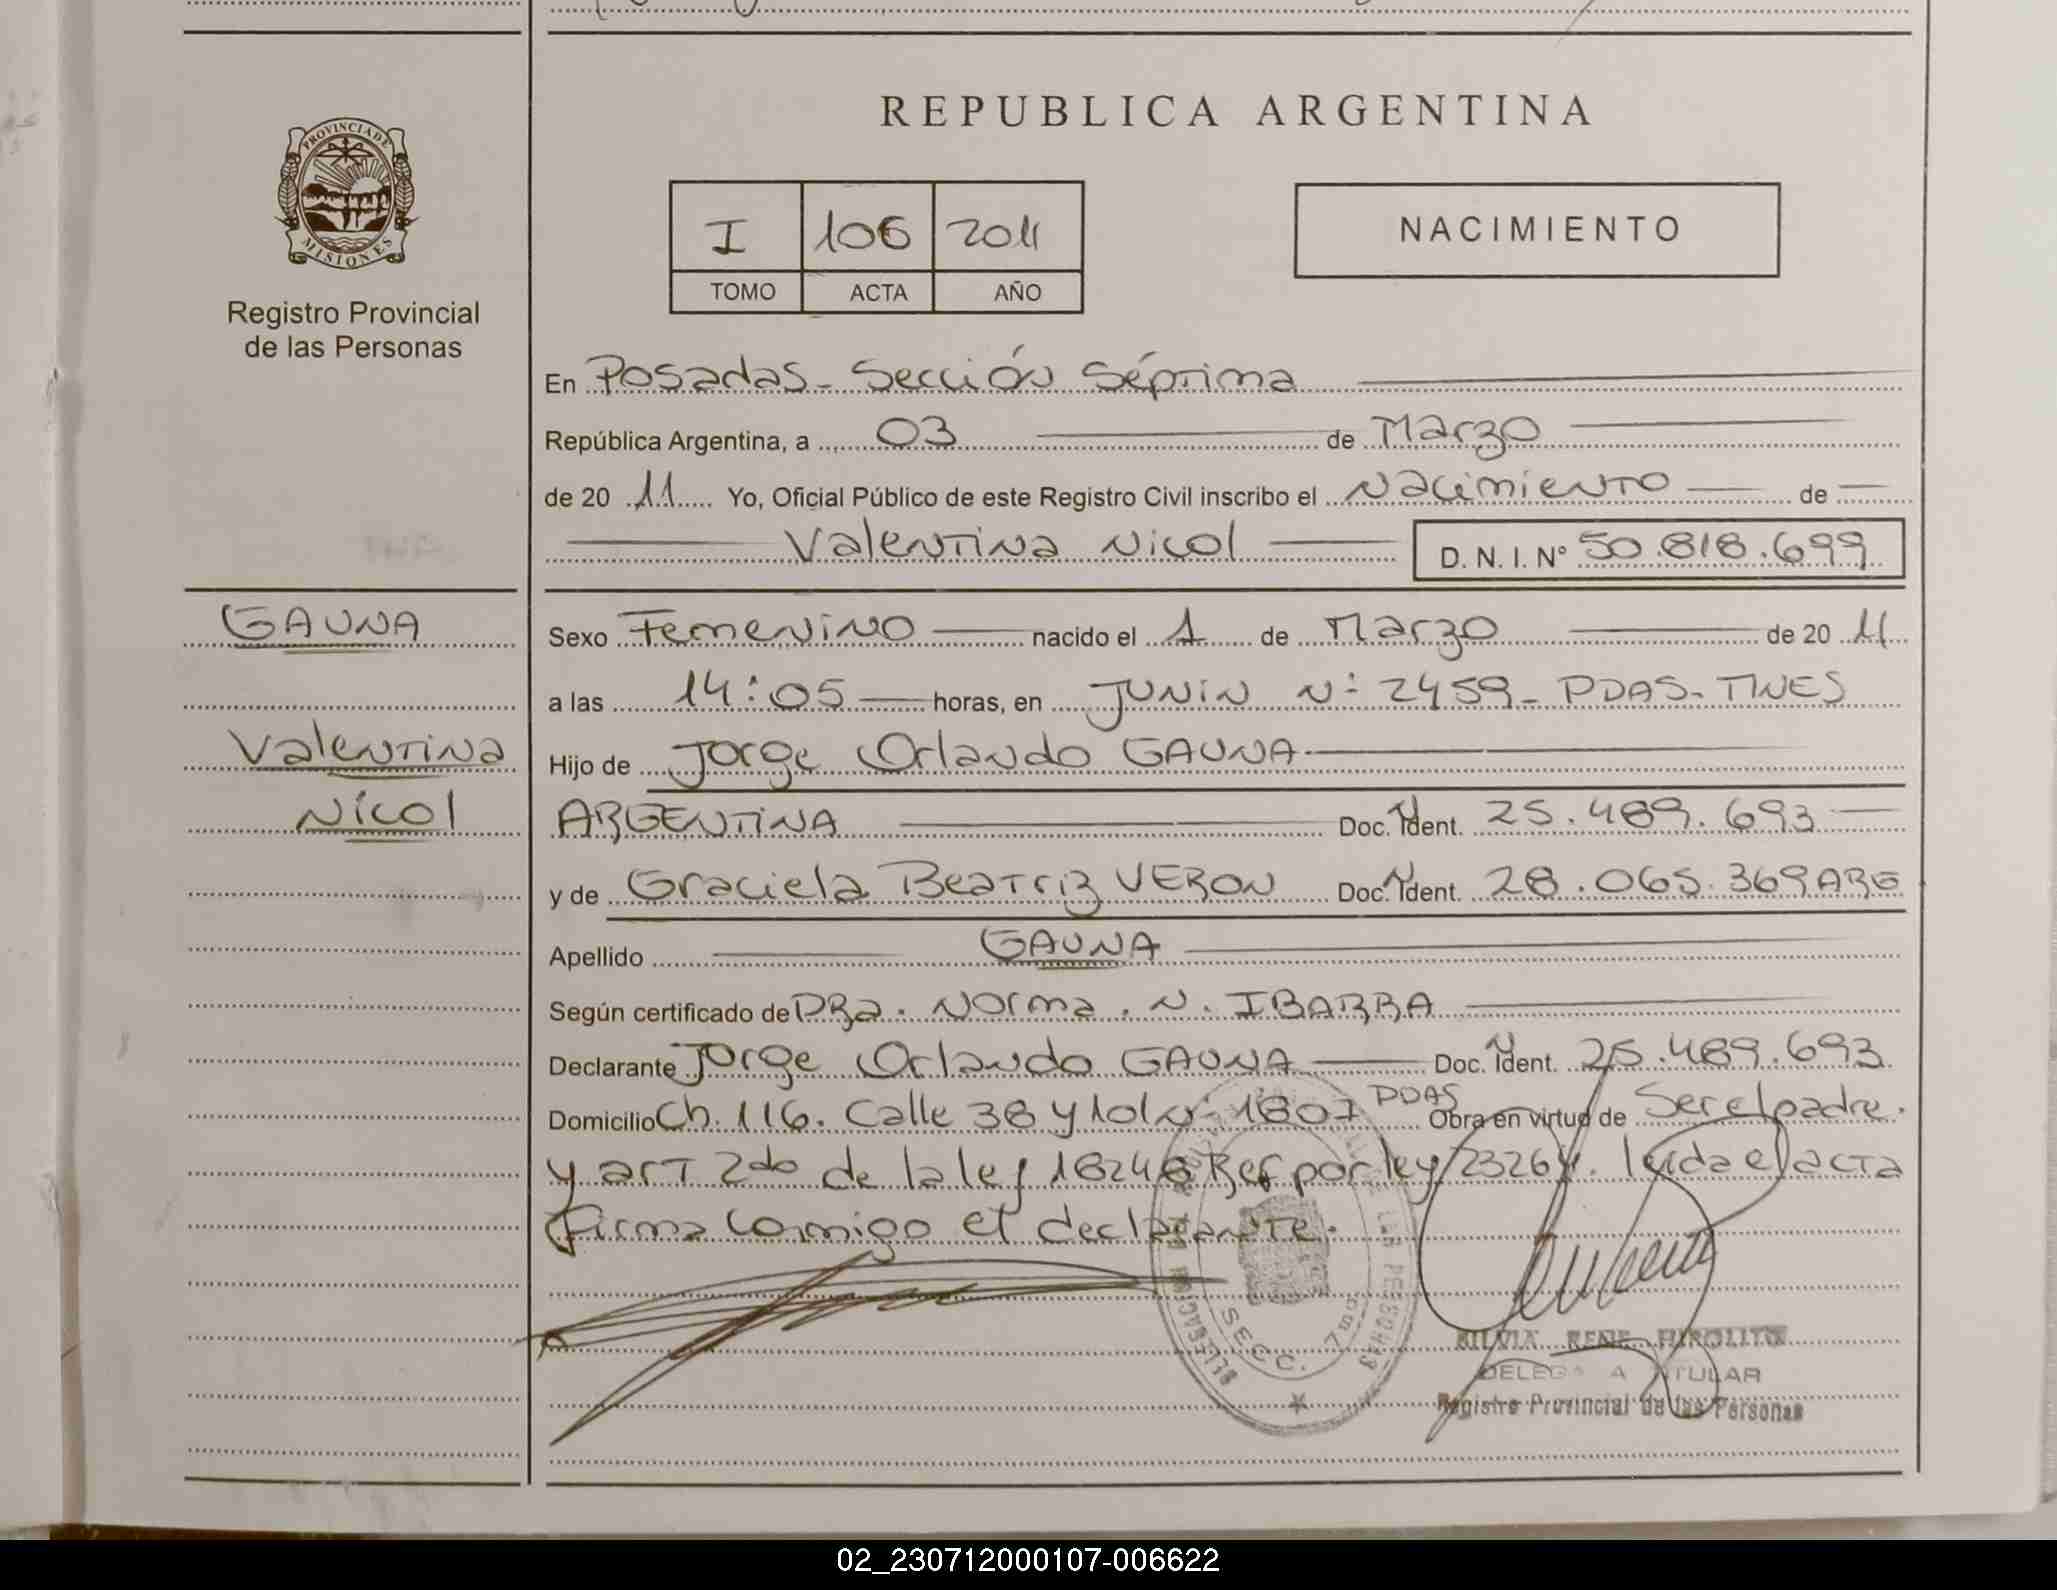 REPUBLICA ARGENTINA
PROVINCIA DE
MISIONES
Registro Provincial
de las Personas
I 106 2011
TOMO ACTA AÑO
NACIMIENTO
En Posadas - Sección Séptima
República Argentina, a 03 de Marzo
de 20 11 Yo, Oficial Público de este Registro Civil inscribo el Nacimiento de
Valentina Nicol D. N. I. Nº 50.818.699
GAUNA
Valentina
Nicol
Sexo Femenino nacido el 1 de Marzo de 20 11
a las 14:05 horas, en JUNIN Nº 2459 - PDAS - MNES
Hijo de Jorge Orlando GAUNA
ARGENTINA Doc. Ident. 25.489.693
y de Graciela Beatriz VERON Doc. Ident. 28.065.369 ARG
Apellido GAUNA
Según certificado de DRa. Norma. N. IBARRA
Declarante Jorge Orlando GAUNA Doc. Ident. 25.489.693
Domicilio Ch. 116. Calle 38 y 101 Nº 1807 PDAS Obra en virtud de Ser el padre.
y art 2do de la ley 18248 Ref por ley 23264. leida el acta
firma conmigo el declarante.
SECC. 7ma
SILVIA RENE HIPOLITO
DELEGADA TITULAR
Registro Provincial de las Personas
02_230712000107-006622